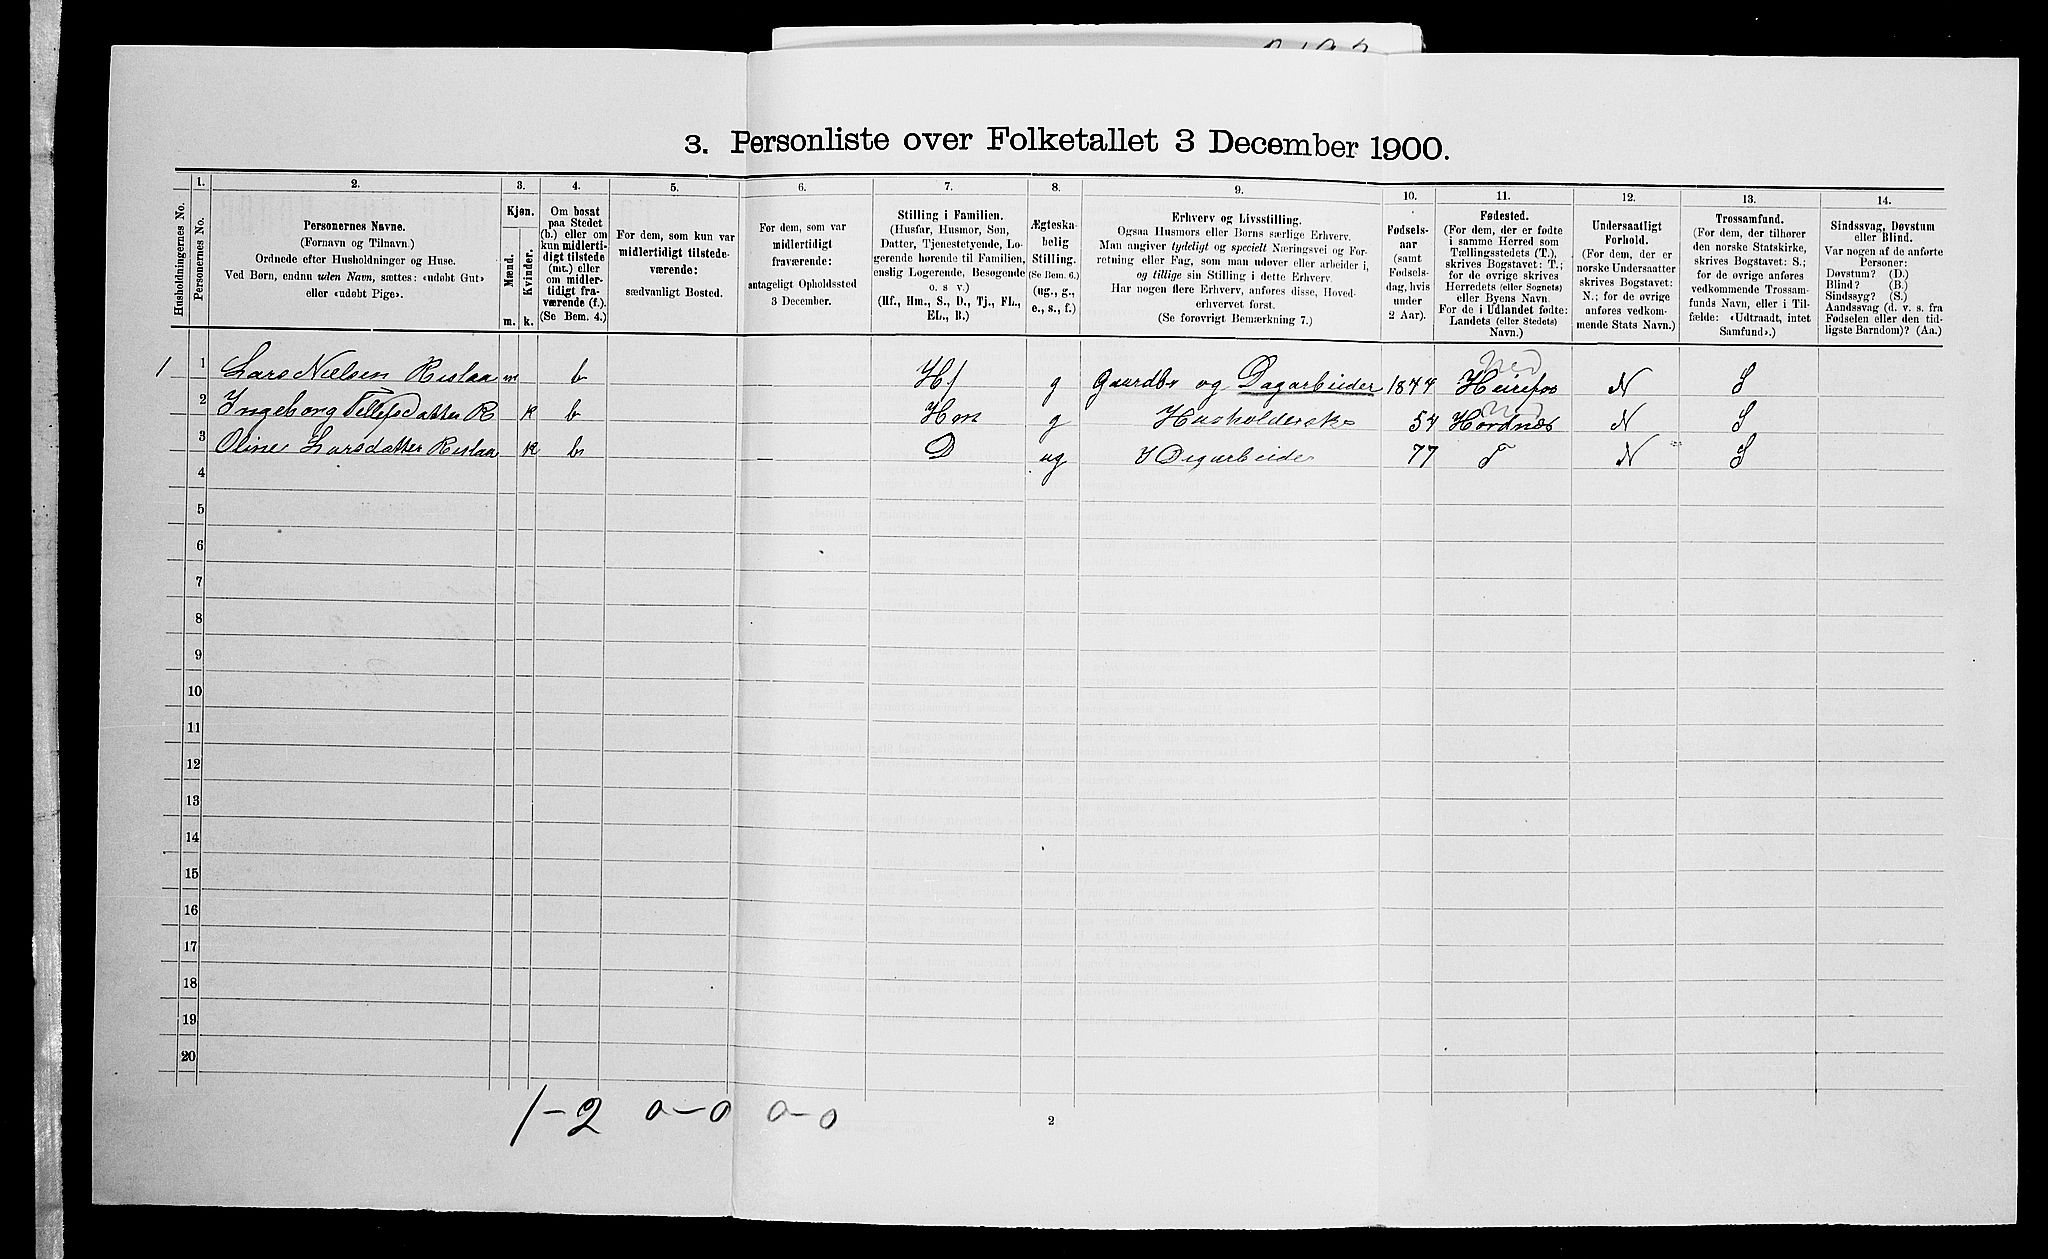 3. Personliste over Folketallet 3 December 1900.
1. 2. 3. 4. 5. 6. 7. 8. 9. 10. 11. 12. 13. 14.
Husholdningernes No.
Personernes No.
Personernes Navne.
(Fornavn og Tilnavn.)
Ordnede efter Husholdninger og Huse.
Ved Børn, endnu uden Navn, sættes: «udøbt Gut»
eller «udøbt Pige».
Kjøn.
Mænd.
Kvinder.
m. k.
Om bosat
paa Stedet
(b.) eller om
kun midlerti-
digt tilstede
(mt.) eller
om midler-
tidigt fra-
værende (f.).
(Se Bem. 4.)
For dem, som kun var
midlertidigt tilstede-
værende:
sædvanligt Bosted.
For dem, som var
midlertidigt
fraværende:
antageligt Opholdssted
3 December.
Stilling i Familien.
(Husfar, Husmor, Søn,
Datter, Tjenestetyende, Lo-
gerende hørende til Familien,
enslig Logerende, Besøgende
o. s v.)
(Hf., Hm., S., D., Tj., FL.,
EL., B.)
Ægteska-
belig
Stilling.
(Se Bem. 6.)
(ug., g.,
e., s., f.)
Erhverv og Livsstilling.
Ogsaa Husmors eller Børns særlige Erhverv.
Man angiver tydeligt og specielt Næringsvei og For-
retning eller Fag, som man udøver eller arbeider i,
og tillige sin Stilling i dette Erhverv.
Har nogen flere Erhverv, anføres disse, Hoved-
erhvervet først.
(Se forøvrigt Bemærkning 7.)
Fødsels-
aar
(samt
Fødsels-
dag, hvis
under
2 Aar).
Fødested.
(For dem, der er fødte
i samme Herred som
Tællingsstedets (T.),
skrives Bogstavet: T.;
for de øvrige skrives
Herredets (eller Sognets)
eller Byens Navn.
For de i Udlandet fødte:
Landets (eller Stedets)
Navn.)
Undersaatligt
Forhold.
(For dem, der er
norske Undersaatter
skrives Bogstavet:
N.; for de øvrige
anføres vedkom-
mende Stats Navn.)
Trossamfund.
(For dem, der tilhører
den norske Statskirke,
skrives Bogstavet: S.;
for de øvrige anføres
vedkommende Trossam-
funds Navn, eller i Til-
fælde: «Udtraadt, intet
Samfund».)
Sindssvag, Døvstum
eller Blind.
Var nogen af de anførte
Personer:
Døvstum? (D.)
Blind? (B.)
Sindssyg? (S.)
Aandssvag (d. v. s. fra
Fødselen eller den tid-
ligste Barndom)? (Aa.)
1 1 Lars Nielsen Rislaa m b Hf g Gaardbr og Dagarbeider 1844 Heirefos Ned N S
2 Ingeborg Tellefsdatter R k b Hm g Husholderske 54 Hordnæs Ned N S
3 Oline Larsdatter Rislaa k b D ug Dagarbeide 77 T N S
4
5
6
7
8
9
10
11
12
13
14
15
16
17
18
19
20
1–2 0–0 0–0
2